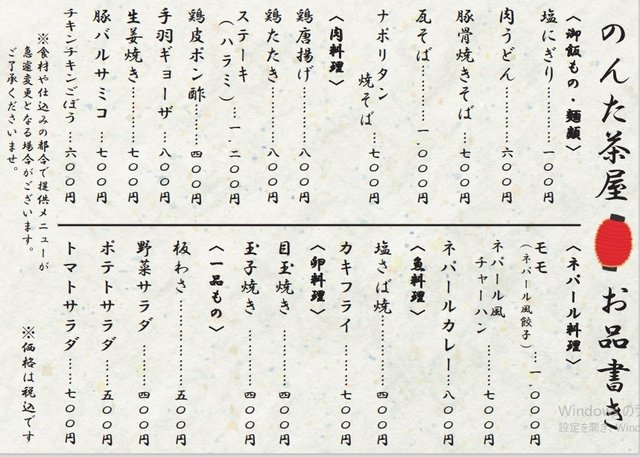 のんた茶屋 お品書き
〈御飯もの・麺類〉
塩にぎり………一〇〇円
肉うどん………六〇〇円
豚骨焼きそば……七〇〇円
瓦そば………一、〇〇〇円
ナポリタン
焼そば……七〇〇円
〈肉料理〉
鶏唐揚げ………八〇〇円
鶏たたき………八〇〇円
ステーキ
（ハラミ）…一、二〇〇円
鶏皮ポン酢……四〇〇円
手羽ギョーザ……八〇〇円
生姜焼き………七〇〇円
豚バルサミコ……七〇〇円
チキンチキンごぼう…六〇〇円
※食材や仕込みの都合で提供メニューが
急遽変更となる場合がございます。
ご了承くださいませ。
〈ネパール料理〉
モモ
（ネパール風餃子）…一、〇〇〇円
ネパール風
チャーハン……七〇〇円
ネパールカレー…八〇〇円
〈魚料理〉
塩さば焼………四〇〇円
カキフライ……七〇〇円
〈卵料理〉
目玉焼き………四〇〇円
玉子焼き………四〇〇円
〈一品もの〉
板わさ…………五〇〇円
野菜サラダ……四〇〇円
ポテトサラダ……五〇〇円
トマトサラダ……七〇〇円
※価格は税込です
Windows のラ
設定を開き、Wind